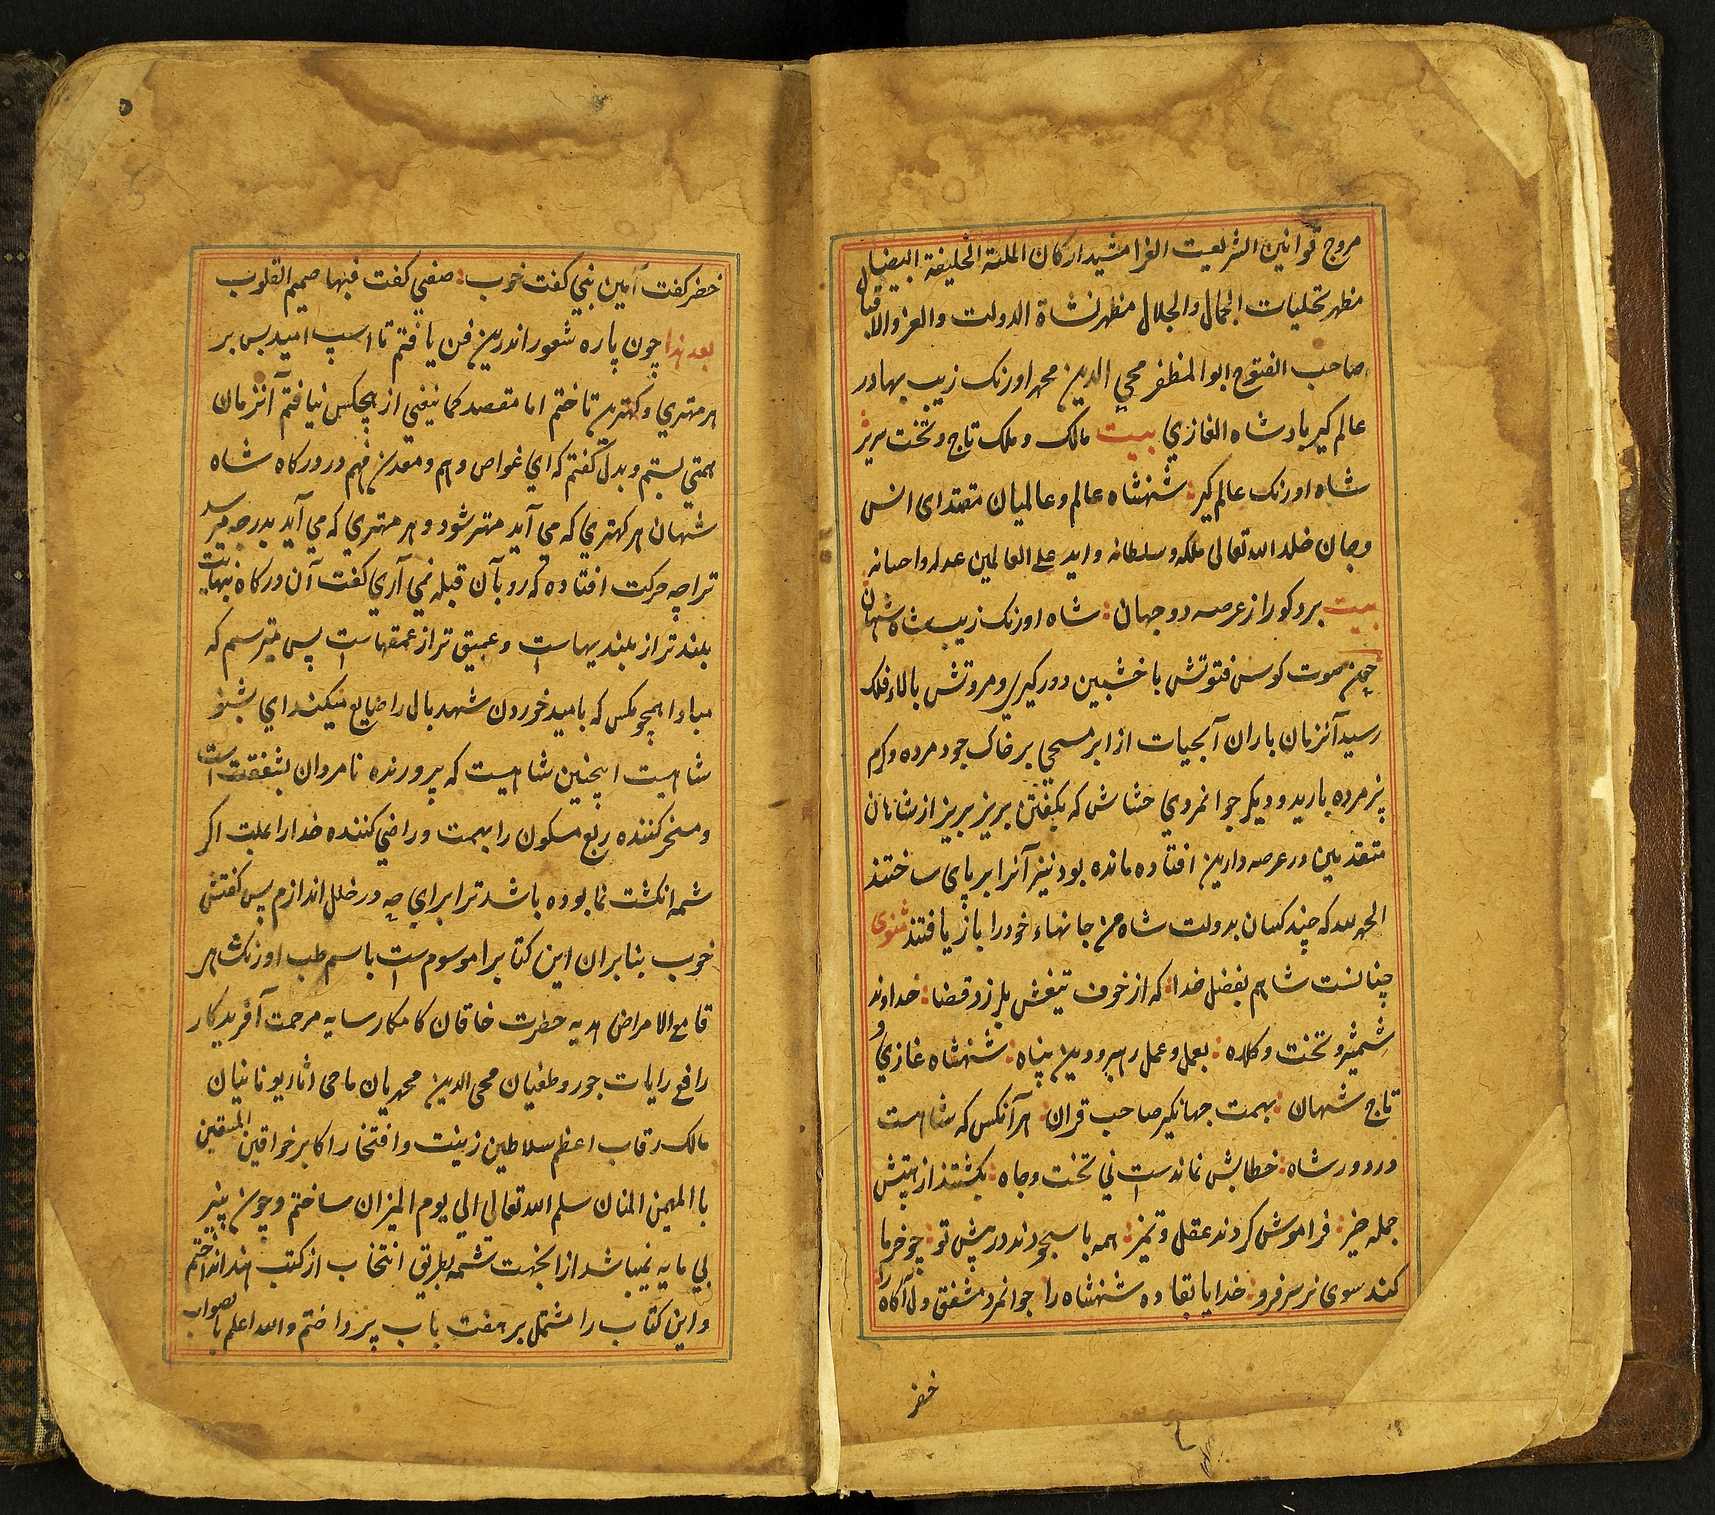 مروج قوانین الشریعت الغرا مشید ارکان الملة الخلیفة البیضا
مظهر تجلیات الجمال والجلال مظهر نشاة الدولت والعز والاقبال
صاحب الفتوح ابوالمظفر محي الدین محمد اورنک زیب بهادر
عالم کیر بادشاه الغازي بیت مالک و ملک تاج و تخت سریر
شاه اورنک عالم کیر: شهنشاه عالم و عالمیان مقتدای انس
و جان خلد الله تعالی ملکه و سلطانه و اید علی العالمین عدله و احسانه
بیت برد کو را از عرصه دو جهان: شاه اورنک زیب شاه شهان
چون صوت کوس فتوتش باخشبین دور کیر و مروتش بالاء فلک
رسید آنزمان باران آبحیات از ابر مسیحي بر خاک جود مرده و کرم
پژمرده بارید و دیکر جوانمردي که بکفتن بریز بریز از شاهان
متقدمین در عرصه دارین افتاده مانده بود نیز آنرا بر پای ساختند
الحمد لله که چند کسان بدولت شاه من جانهاء خود را باز یافتند مثنوی
چنانست شاهم بفضل خدا: که از خوف تیغش بلرزد قضا: خداوند
شمشیر و تخت و کلاه: بعمل و عمل رهبر و دین پناه: شهنشاه غازي و
تاج شهان: بهمت جهانکیر صاحب قران: هر آنکس که شاهست
در دور شاه: خطابش نماندست ني تخت و جاه: بکشتند از هیبتش
جمله حیز: فراموش کردند عقل و تمیز: همه با سجودند در پیش تو: چو خرما
کند سوی نر سر فرو: خدایا بقا ده شهنشاه را: جوانمرد مشفق دل آکاه را
خضر
۵
خضر کفت آمین نبي کفت خوب: صفي کفت فیها صمیم القلوب
بعد هذا چون پاره شعور اندرین فن یافتم تا اسپ امید بس بر
هر مهتري و کهترین تاختم اما مقصد کما ینبغي از هیچکس نیافتم آنزمان
همتي بستم و بدل کفتم که اي غواص وهم و معدن فهم در درکاه شاه
شهان هر کهتري که مي آید مهتر شود و هر مهتري که مي آید بدرجه میرسد
ترا چه حرکت افتاده که رو بآن قبله نمي آري کفت آن درکاه نهایت
بلند تر از بلندیهاست و عمیق تر از عمقهاست پس میترسم که
مبادا همچو مکس که بامید خوردن شهد بال را ضایع میکند اي بشنو
شاهیست اینچنین شاهیست که پرورنده نامردان بشفقت است
و مسخر کننده ربع مسکون را بهمت و راضي کننده خدا را اکر
شمه انکشت نما بوده باشد ترا براي چه در خلل اندازم پس کفتش
خوب بنابران این کتاب را موسوم است باسم طب اورنک شاهی
قامع الامراض هدیه حضرت خاقان کامکار سایه مرحمت آفریدکار
رافع رایات جور و طغیان محی الدین محمدیان ماحی آثار یونانیان
مالک رقاب اعظم سلاطین زینت و افتخار اکابر خواقین المستقین
با المهیمن المنان سلم الله تعالي الي یوم المیزان ساختم و چون پنیر
بي مایه نمیباشد از انجهت شمه بطریق انتخاب از کتب هند انداختم
و این کتاب را مشتمل بر هفت باب پرداختم و الله اعلم بالصواب